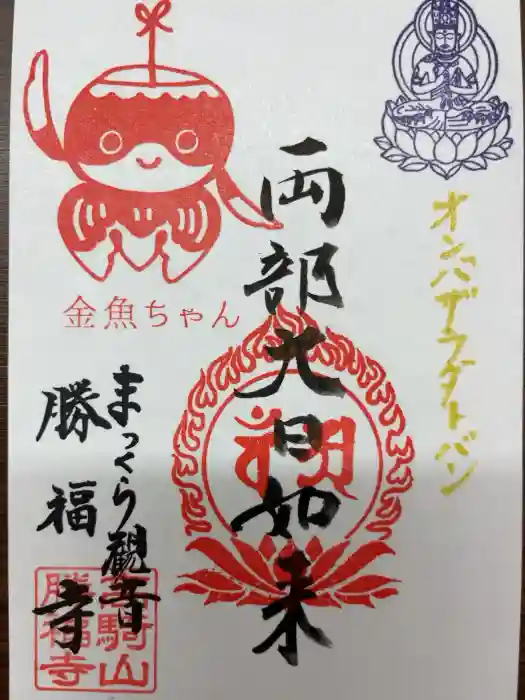 オンバザラダトバン
両部大日如来
金魚ちゃん
まっくら観音
勝福寺
騎山
勝福寺